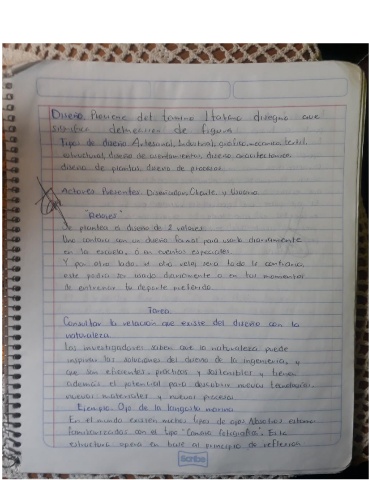 Diseño: Proviene del termino Italiano disegno que
significa delineacion de figura
Tipos de diseño Artesanal, Industrial, grafico, mecanico, textil
estructural, diseño de , diseño arquitectonico
diseño de plantas, diseño de procesos.
Actores Presentes: Diseñador, Cliente y Usuario
"Relojes"
Se plantea el diseño de 2 relojes:
Uno contara con un diseño formal para usarlo diariamente
en la escuela, o en eventos especiales
Y por otro lado el otro reloj sera todo lo contrario,
este podra ser usado diariamente o en tus momentos
de entrenar tu deporte preferido
Tarea
Consultar la relacion que existe del diseño con la
naturaleza
Los investigadores saben que la naturaleza puede
inspirar las soluciones del diseño de la ingenieria, y
que son eficientes, practicos y sostenibles y tienen
ademas el potencial para descubrir nuevas tecnologias,
nuevos materiales y nuevos procesos
Ejemplo: Ojo de la langosta marina
En el mundo existen muchos tipos de ojos Nosotros estamos
familiarizados con el tipo "Camara fotografica". Esta
estructura opera en base al principio de refraccion
Scribe